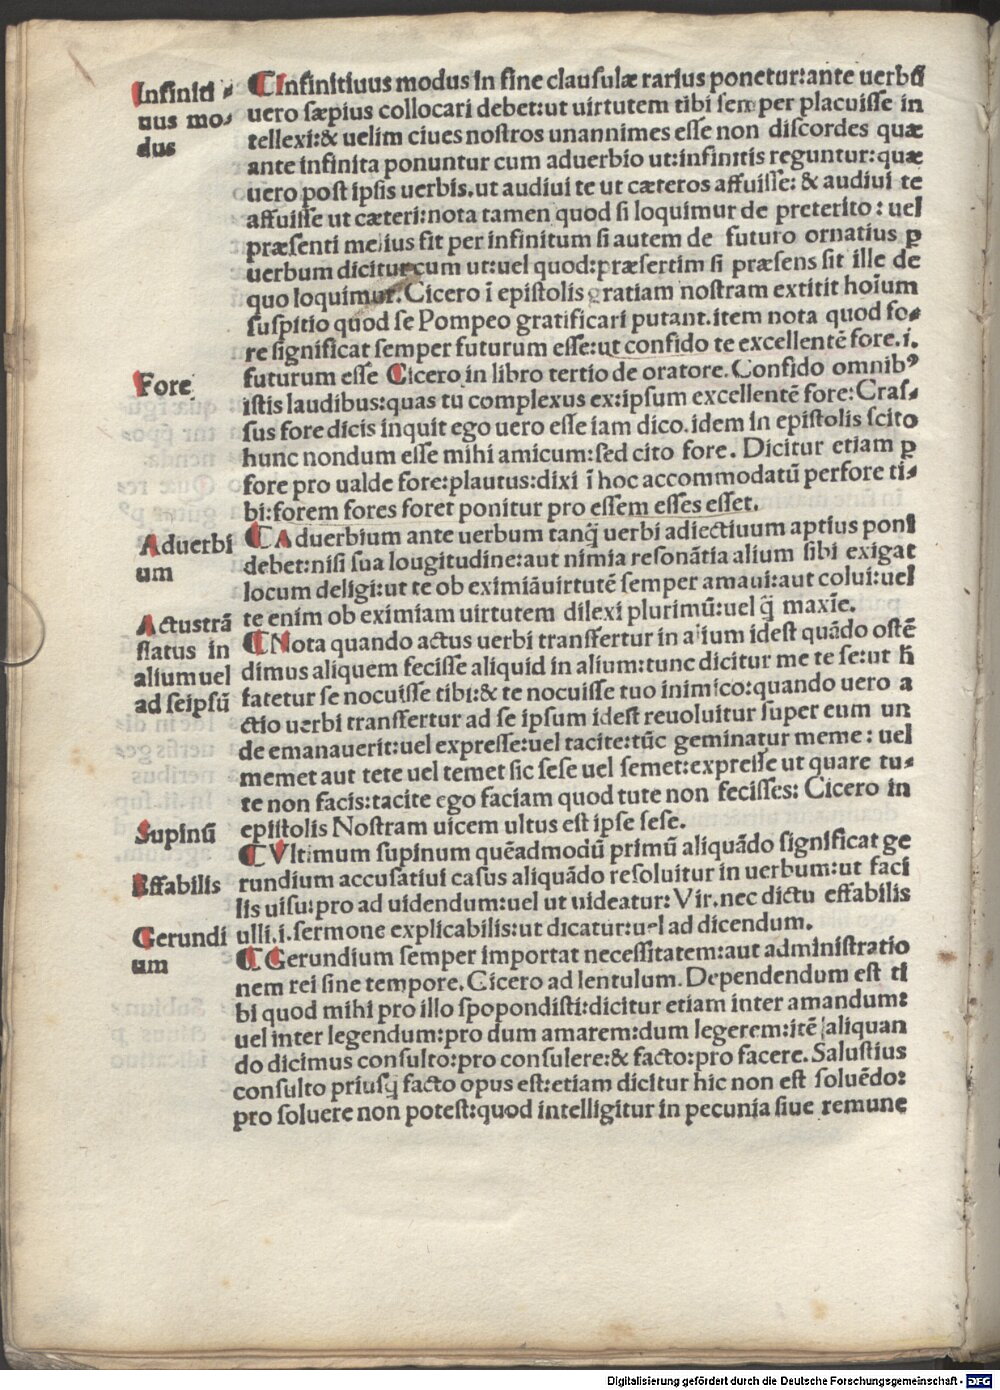 Infiniti⸗
uus mo⸗
dus
⸿Infinitiuus modus in fine clausulæ rarius ponetur:ante uerbū
uero sæpius collocari debet:ut uirtutem tibi semper placuisse in
tellexi:& uelim ciues nostros unannimes esse non discordes quæ
ante infinita ponuntur cum aduerbio ut:infinitis reguntur:quæ
uero post ipsis uerbis.ut audiui te ut cæteros affuisse: & audiui te
affuisse ut cæteri:nota tamen quod si loquimur de preterito: uel
præsenti melius fit per infinitum si autem de futuro ornatius ꝑ
uerbum dicitur cum ut:uel quod:præsertim si præsens sit ille de
quo loquimur.Cicero ī epistolis gratiam nostram extitit hoīum
suspitio quod se Pompeo gratificari putant.item nota quod fo⸗
re significat semper futurum esse:ut confido te excellentē fore.i.
Fore
futurum esse Cicero in libro tertio de oratore. Confido omnibꝰ
istis laudibus:quas tu complexus ex:ipsum excellentē fore:Cras⸗
sus fore dicis inquit ego uero esse iam dico.idem in epistolis scito
hunc nondum esse mihi amicum:sed cito fore. Dicitur etiam ꝑ
fore pro ualde fore:plautus:dixi ī hoc accommodatū perfore ti⸗
bi:forem fores foret ponitur pro essem esses esset.
Aduerbi
um
⸿Aduerbium ante uerbum tanq̄ uerbi adiectiuum aptius poni
debet:nisi sua lougitudine:aut nimia resonātia alium sibi exigat
locum deligi:ut te ob eximiāuirtutē semper amaui:aut colui:uel
te enim ob eximiam uirtutem dilexi plurimū:uel q̄ maxīe.
Actustrā
slatus in
alium uel
ad seipsū
⸿Nota quando actus uerbi transfertur in alium idest quādo ostē
dimus aliquem fecisse aliquid in alium:tunc dicitur me te se:ut h̄
fatetur se nocuisse tibi:& te nocuisse tuo inimico:quando uero a
ctio uerbi transfertur ad se ipsum idest reuoluitur super eum un
de emanauerit:uel expresse:uel tacite:tūc geminatur meme: uel
memet aut tete uel temet sic sese uel semet:expresse ut quare tu⸗
te non facis:tacite ego faciam quod tute non fecisses: Cicero in
epistolis Nostram uicem ultus est ipse sese.
Supinū
⸿Vltimum supinum quēadmodū primū aliquādo significat ge
Effabilis
rundium accusatiui casus aliquādo resoluitur in uerbum:ut faci
lis uisu:pro ad uidendum:uel ut uideatur: Vir.nec dictu effabilis
ulli.i.sermone explicabilis:ut dicatur:uel ad dicendum.
Gerundi
um
⸿Gerundium semper importat necessitatem:aut administratio
nem rei sine tempore. Cicero ad lentulum. Dependendum est ti
bi quod mihi pro illo spopondisti:dicitur etiam inter amandum:
uel inter legendum:pro dum amarem:dum legerem:itē aliquan
do dicimus consulto:pro consulere:& facto:pro facere. Salustius
consulto priusq̄ facto opus est:etiam dicitur hic non est soluēdo:
pro soluere non potest:quod intelligitur in pecunia siue remune
Digitalisierung gefördert durch die Deutsche Forschungsgemeinschaft - DFG